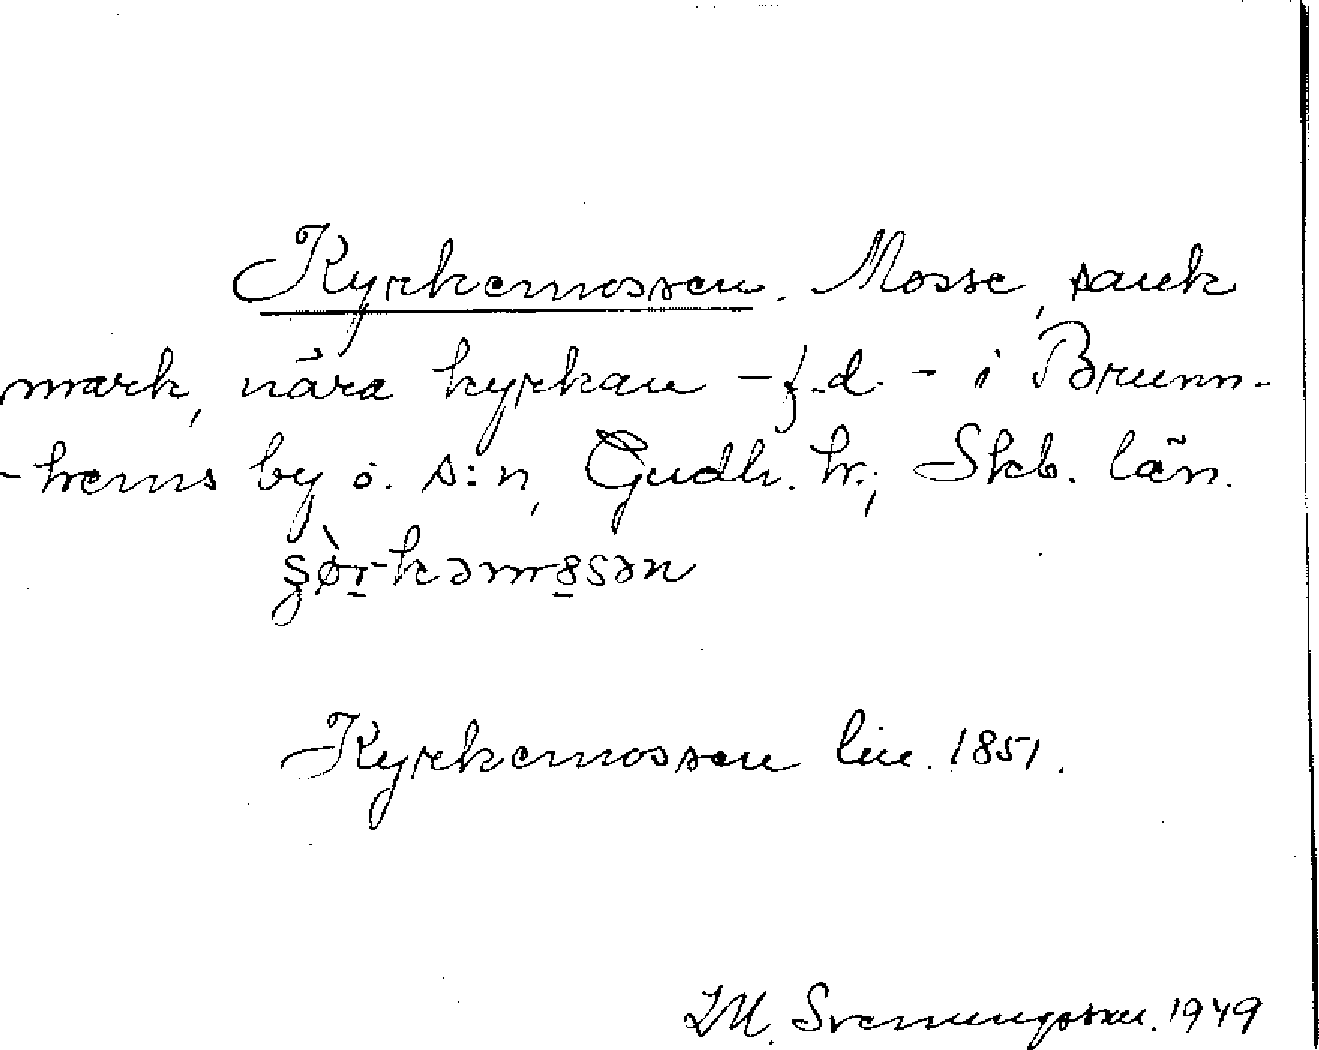 Kyrkemossen. Mosse, sank
mark, nära kyrkan - f.d. - i Brunn-
-hems by o. s:n, Gudh. hr., Skb. län.
Kyrkemossen lm. 1851.
Svenungsson. 1949